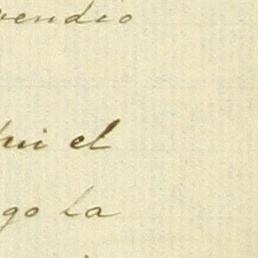 vendio
hui el
go la